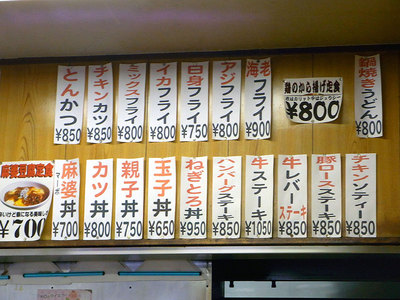 とんかつ
¥850
チキンカツ
¥850
ミックスフライ
¥800
イカフライ
¥800
白身フライ
¥750
アジフライ
¥800
海老フライ
¥900
鶏のから揚げ定食
¥800
鍋焼きうどん
¥800
麻婆豆腐定食
¥700
麻婆丼
¥700
カツ丼
¥800
親子丼
¥750
玉子丼
¥650
ねぎとろ丼
¥950
ハンバーグステーキ
¥850
牛ステーキ
¥1050
牛レバーステーキ
¥850
豚ロースステーキ
¥850
チキンソティー
¥850